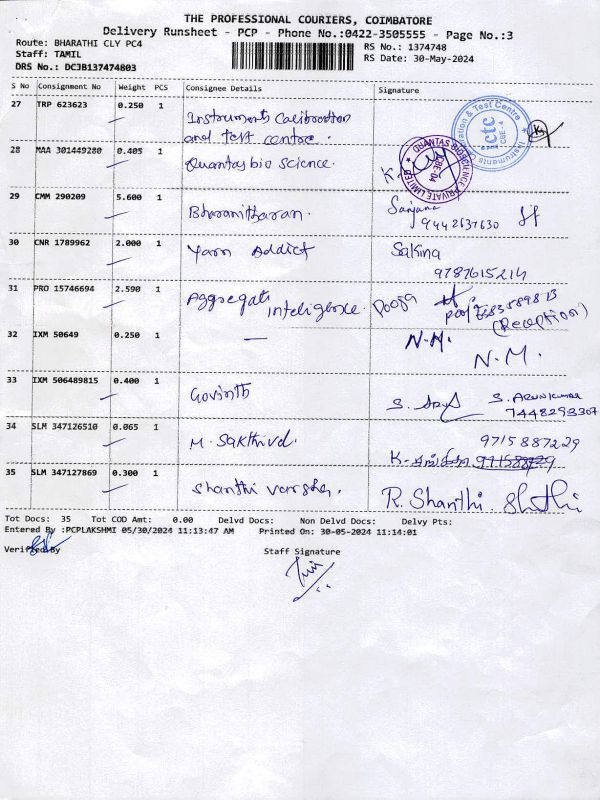 THE PROFESSIONAL COURIERS, COIMBATORE
Delivery Runsheet - PCP - Phone No.:0422-3505555 - Page No.:3
Route: BHARATHI CLY PC4
Staff: TAMIL
DRS No.: DCJB137474803
RS No.: 1374748
RS Date: 30-May-2024
S No Consignment No Weight PCS Consignee Details Signature
27 TRP 623623 0.250 1 Instruments Calibration
and test centre.
28 MAA 301449280 0.405 1 Quantas bio science.
QUANTAS BIOSCIENCE PRIVATE LIMITED
CBE-04
ictc
CBE - 4
29 CMM 290209 5.600 1 Bharanitharan. Sanjana
9442637630
30 CNR 1789962 2.000 1 Yarn Addict Sakina
9787615214
31 PRO 15746694 2.590 1 Aggregate
inteligence. Pooja
(Reception)
32 IXM 50649 0.250 1 — N.M.
N.M.
33 IXM 506489815 0.400 1 Govinth S. ARUNKUMAR
7448293307
34 SLM 347126510 0.065 1 M. Sakthivel. 9715887229
35 SLM 347127869 0.300 1 Shanthi varsha. R. Shanthi
Tot Docs: 35 Tot COD Amt: 0.00 Delvd Docs: Non Delvd Docs: Delvy Pts:
Entered By :PCPLAKSHMI 05/30/2024 11:13:47 AM Printed On: 30-05-2024 11:14:01
Verified By Staff Signature